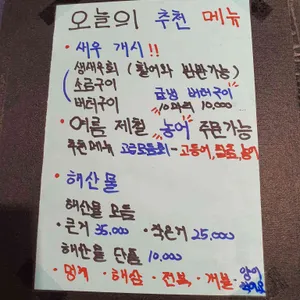 오늘의 추천 메뉴
• 새우 개시!!
생새우회 (활어와 반반가능)
소금구이 급냉 버터구이
버터구이 10마리 10,000
• 여름 제철 농어 주문가능
추천메뉴 고등어,
• 해산물
해산물 모듬
• 큰거 35,000 • 작은거 25,000
해산물 단품 10,000
• 멍게 • 해삼 • 전복 • 개불